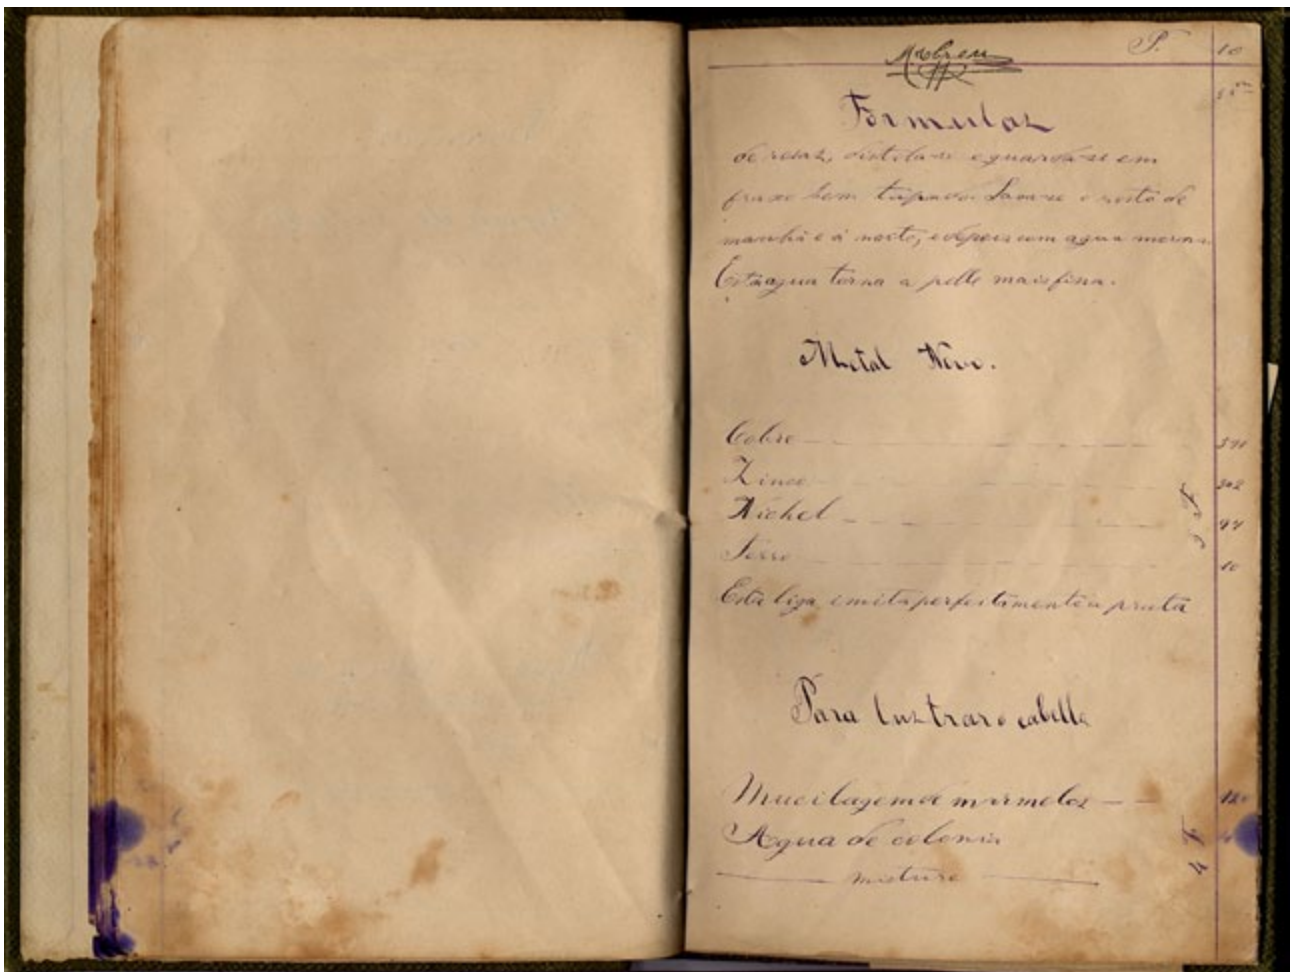 P. 10
Formulas
de rosas, distila-se e guarda-se em
frasco bem tapado. Lava-se o rosto de
manhã e á noite, e depois com agua morna
Esta agua torna a pelle mais fina.
Metal Novo.
Cobre
Zinco
Nichel
Ferro 10
Esta liga imita perfeitamente a prata
Para luztrar o cabello
Mucilagem de marmelos
Agua de colonia
misture